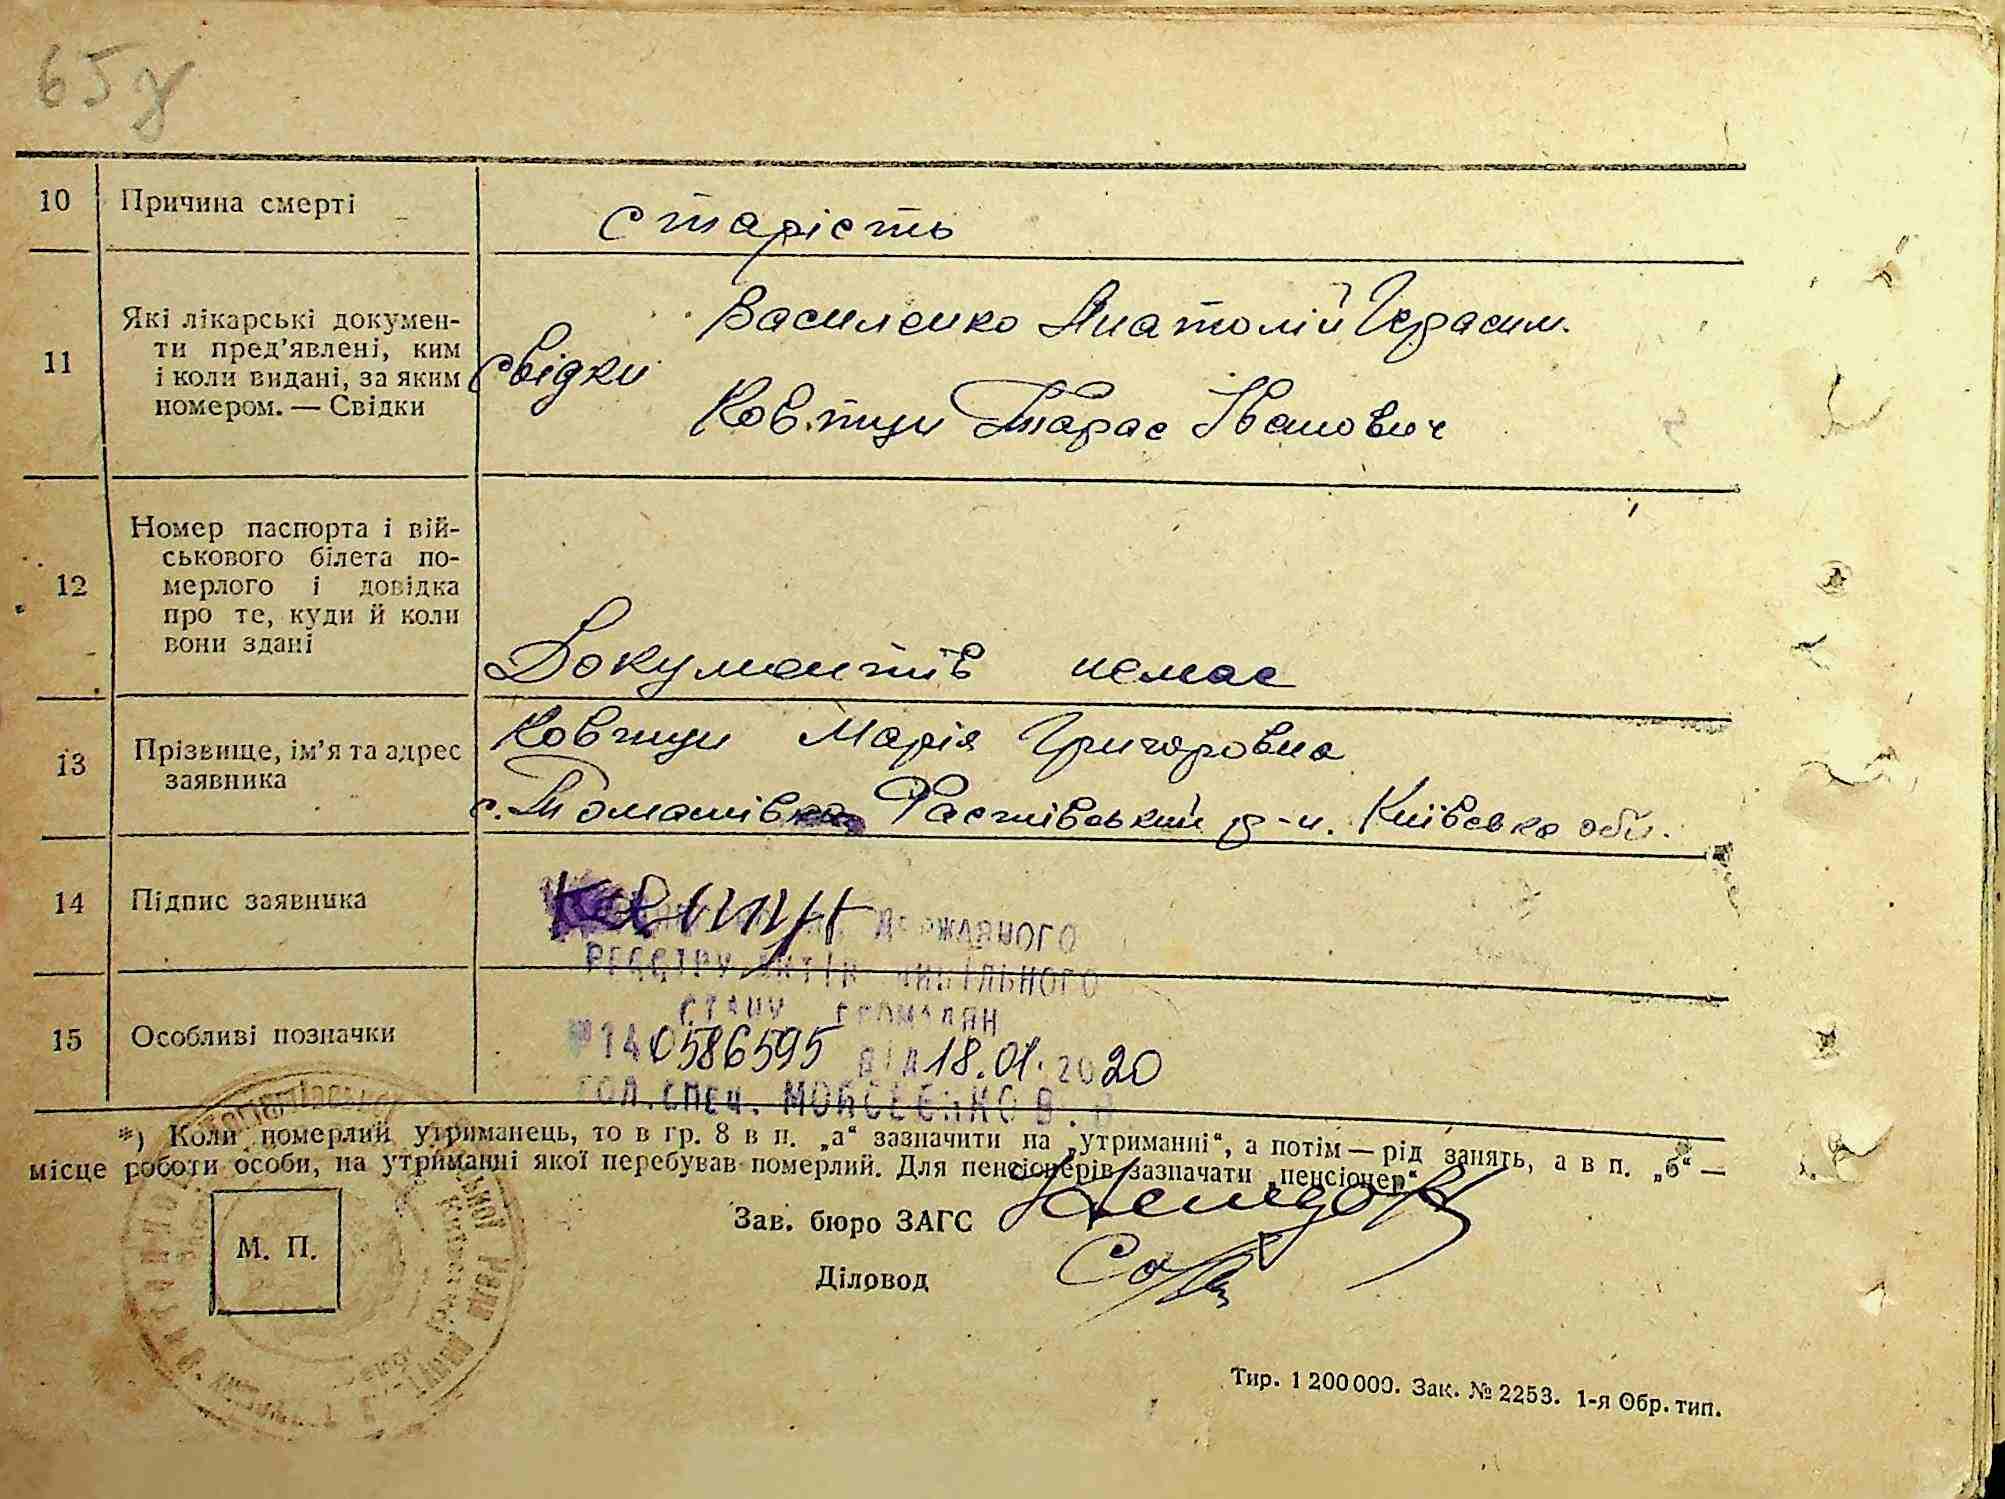 65
10 Причина смерті старість
11 Які лікарські докумен-
ти пред'явлені, ким
і коли видані, за яким
номером. — Свідки
свідки
Василенко Анатолій Герасим.
Ковтун Тарас Іванович
12 Номер паспорта і вій-
ськового білета по-
мерлого і довідка
про те, куди й коли
вони здані
Документів немає
13 Прізвище, ім'я та адрес
заявника
Ковтун Марія Григоровна
с. Томашівка Фастівський р-н. Київська обл.
14 Підпис заявника Ковтун
ДЕРЖАВНОГО
РЕЄСТРУ АКТІВ ЦИВІЛЬНОГО
СТАНУ ГРОМАДЯН
15 Особливі позначки
№140586595 ВІД 18.01.2020
ГОЛ.СПЕЦ. МОЙСЕЄНКО В.
*) Коли померлий утриманець, то в гр. 8 в п. „а“ зазначити на „утриманні“, а потім — рід занять, а в п. „б“ —
місце роботи особи, на утриманні якої перебував померлий. Для пенсіонерів зазначати „пенсіонер“
Зав. бюро ЗАГС
М. П.
Діловод
Тир. 1 200 000. Зак. № 2253. 1-я Обр. тип.